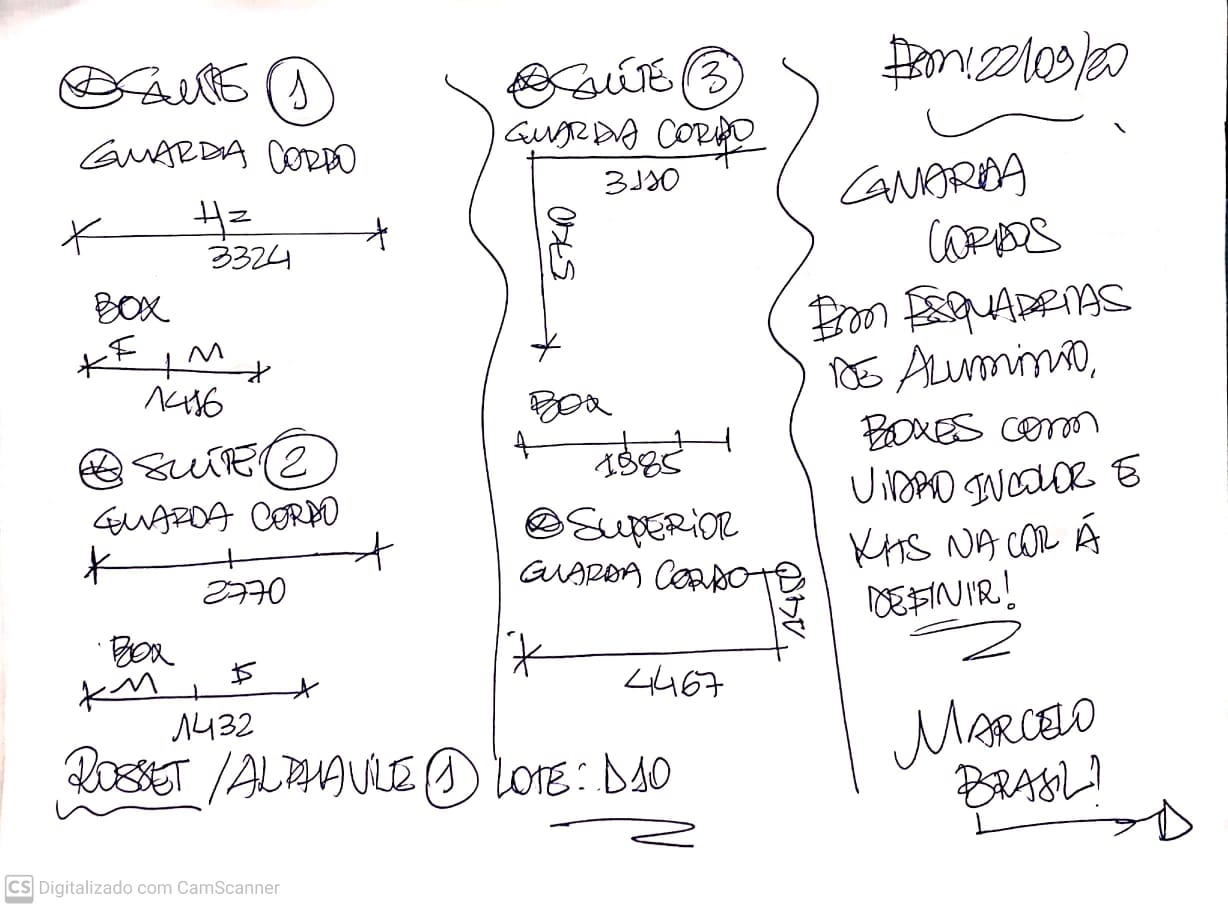 SUÍTE 1
GUARDA CORPO
Hz
3324
BOX
F M
1416
SUÍTE 2
GUARDA CORPO
2770
BOX
M F
1432
ROSSET / ALPHAVILE 1 LOTE: D10
SUÍTE 3
GUARDA CORPO
3110
BOX
1985
SUPERIOR
GUARDA CORPO
4467
Em! 22/09/20
GUARDA
CORPOS
Em ESQUADRIAS
DE ALUMINIO,
BOXES com
VIDRO INCOLOR E
KITS NA COR Á
DEFINIR!
MARCELO
BRASIL!
CS Digitalizado com CamScanner